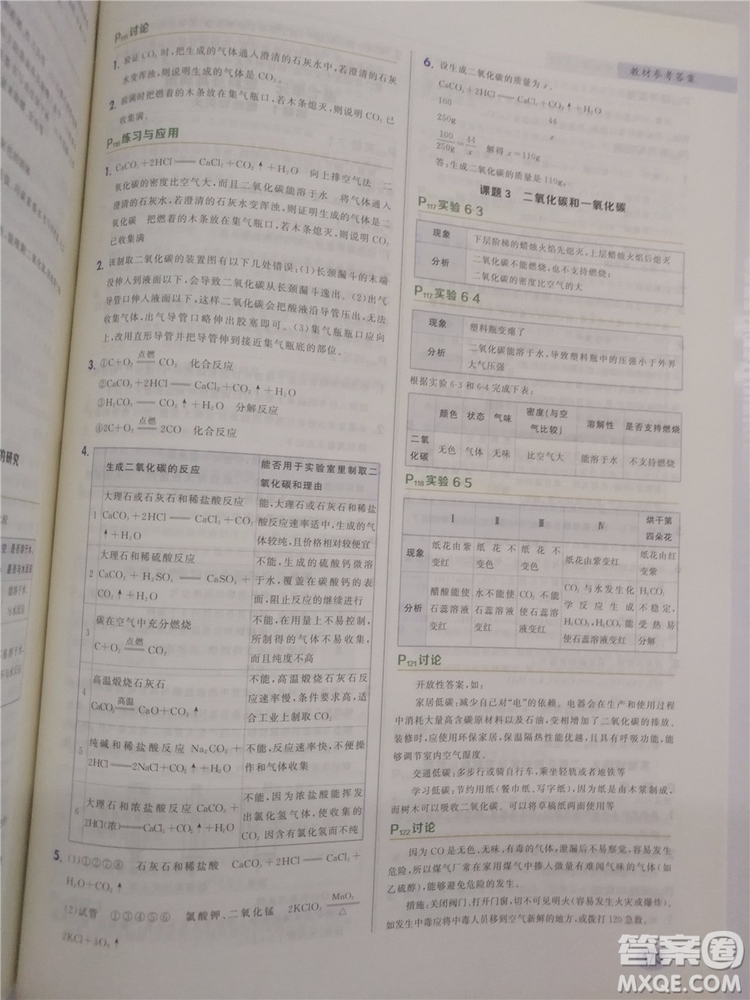 教材参考答案
P116讨论
1. 验证CO₂时,把生成的气体通入澄清的石灰水中,若澄清的石灰
水变浑浊,则说明生成的气体是CO₂。
2. 验满时把燃着的木条放在集气瓶口,若木条熄灭,则说明CO₂已
收集满。
P116练习与应用
1. CaCO₃+2HCl══CaCl₂+CO₂↑+H₂O 向上排空气法 二
氧化碳的密度比空气大,而且二氧化碳能溶于水 将气体通入
澄清的石灰水中,若澄清的石灰水变浑浊,则说明气体是二氧
化碳 把燃着的木条放在集气瓶口,若木条熄灭,则说明已收
集满
2. 该制取二氧化碳的装置图有以下几处错误:(1)长颈漏斗的末端
没伸入到液面以下,会导致二氧化碳从长颈漏斗逸出。(2)出气
导管口伸入液面以下,这样二氧化碳会把酸液沿导气管压出,
应使出气导管口略伸出胶塞即可。(3)集气瓶瓶口应向
上,改用直形导管并把导管伸到接近集气瓶底的部位。
3. ①C+O₂ 点燃══ CO₂ 化合反应
②CaCO₃+2HCl══CaCl₂+CO₂↑+H₂O
③H₂CO₃══CO₂↑+H₂O 分解反应
④2C+O₂ 点燃══ 2CO 化合反应
4.
生成二氧化碳的反应 能否用于实验室里制取二氧化碳和理由
1 大理石或石灰石和稀盐酸反应 CaCO₃+2HCl══CaCl₂+CO₂↑+H₂O 大理石或石灰石和稀盐酸反应速率适中,生成的气体较纯,且价格不昂贵
2 大理石和稀硫酸反应 CaCO₃+H₂SO₄══CaSO₄+CO₂↑+H₂O 不能,生成的硫酸钙微溶于水,覆盖在碳酸钙的表面,阻止反应的继续进行
3 碳在空气中充分燃烧 C+O₂ 点燃══ CO₂ 不能,在用量上不易控制,所制得的气体不易收集而且纯度不高
4 高温煅烧石灰石 CaCO₃ 高温══ CaO+CO₂↑ 不能,实验条件不易满足,反应速率慢,条件要求高,适合工业上制取CO₂
5 纯碱和稀盐酸反应 Na₂CO₃+2HCl══2NaCl+CO₂↑+H₂O 不能,反应速率太快,不便操作
6 大理石和浓盐酸反应 CaCO₃+2HCl(浓)══CaCl₂+CO₂↑+H₂O 不能,因为浓盐酸能挥发出氯化氢气体,使收集的CO₂中因含有氯化氢而不纯
5. (1)①②⑦⑧ 石灰石和稀盐酸 CaCO₃+2HCl══CaCl₂+
H₂O+CO₂↑
(2)试管 ①③④⑤⑥ 氯酸钾、二氧化锰 2KClO₃ MnO₂══△
2KCl+3O₂↑
6. 设生成二氧化碳的质量为x。
CaCO₃+2HCl══CaCl₂+CO₂↑+H₂O
100 44
250g x
100/250g=44/x 解得x=110g
答:生成二氧化碳的质量是110g。
课题3 二氧化碳和一氧化碳
P117实验6-3
现象 下层阶梯的蜡烛火焰先熄灭,上层蜡烛火焰后熄灭
分析 二氧化碳不能燃烧,也不能支持燃烧;
二氧化碳的密度比空气的大
P117实验6-4
现象 塑料瓶变瘪了
分析 二氧化碳能溶于水,导致塑料瓶中的压强小于外界
大气压强
根据实验6-3和6-4完成下表:
颜色 状态 气味 密度(与空气比较) 溶解性 是否支持燃烧
二氧化碳 无色 气体 无味 大 能溶于水 不支持燃烧
P118实验6-5
Ⅰ Ⅱ Ⅲ Ⅳ 烘干第四朵花
现象 纸花由紫变红 纸花不变色 纸花不变色 纸花由紫变红 纸花由红变紫
分析 醋酸能使石蕊溶液变红 水不能使石蕊溶液变红 CO₂不能使石蕊溶液变红 CO₂与水发生化学反应生成H₂CO₃,H₂CO₃能使石蕊溶液变红 H₂CO₃不稳定,受热易分解
P121讨论
开放性答案,如:
家居低碳:减少自己对“电”的依赖。电器会在生产和使用过程
中消耗大量高含碳原材料以及石油,变相增加了二氧化碳的排放。
装修时,应使用环保家居装饰,保温隔热性能优越,且具有一定能够
调节室内空气湿度。
交通低碳:步行或骑自行车,乘坐轻轨或者地铁等
学习低碳:节约用纸(餐巾纸、写字纸),因为纸是由木浆制成,
而树木可以吸收二氧化碳。可以将草稿纸两面都写等。
P122讨论
因为CO是无色、无味、有毒的气体,泄漏后不易察觉,容易发生
危险,所以煤气厂常在家用煤气中掺入微量有难闻气味的气体(如
乙硫醇),便于使人们及早发现危险。
措施:关闭阀门、打开门窗、严禁明火(容易发生火灾或爆炸)。
如发生中毒应将中毒人员移到空气新鲜的地方,或拨打120急救。
的研究
答案圈
MXQE.COM